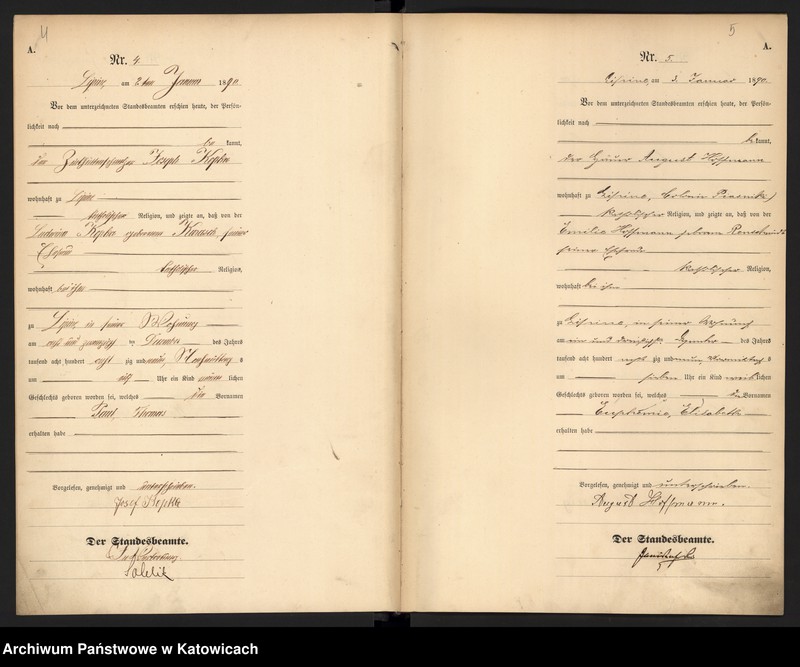 4
A.
Nr. 4
Lipine, am 2ten Januar 1890
Vor dem unterzeichneten Standesbeamten erschien heute, der Persön-
lichkeit nach
be kannt,
der Joseph Kopka
wohnhaft zu Lipine
katholischer Religion, und zeigte an, daß von der
Kopka geborenen seiner
Ehefrau
katholischer Religion,
wohnhaft bei ihm
zu Lipine in seiner Wohnung
am acht und zwanzigsten Dezember des Jahres
tausend acht hundert acht zig und neun, Nachmittags
um Uhr ein Kind männ lichen
Geschlechts geboren worden sei, welches die Vornamen
Paul, Thomas
erhalten habe
Vorgelesen, genehmigt und unterschrieben.
Josef Kopka
Der Standesbeamte.
5
A.
Nr. 5.
am 3. Januar 1890.
Vor dem unterzeichneten Standesbeamten erschien heute, der Persön-
lichkeit nach
be kannt,
der Häuer August Hoffmann
wohnhaft zu Colonie Piasniki
katholischer Religion, und zeigte an, daß von der
Emilie Hoffmann geboren
seiner Ehefrau
katholischer Religion,
wohnhaft bei ihm
zu in seiner Wohnung
am ein und dreißigsten Dezember des Jahres
tausend acht hundert acht zig und neun, Vormittags
um sieben Uhr ein Kind weib lichen
Geschlechts geboren worden sei, welches die Vornamen
Euphemie, Elisabeth
erhalten habe
Vorgelesen, genehmigt und unterschrieben.
August Hoffmann.
Der Standesbeamte.
Archiwum Państwowe w Katowicach